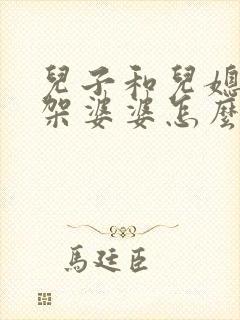 兒子和兒媳
架婆婆怎麼
馬廷臣